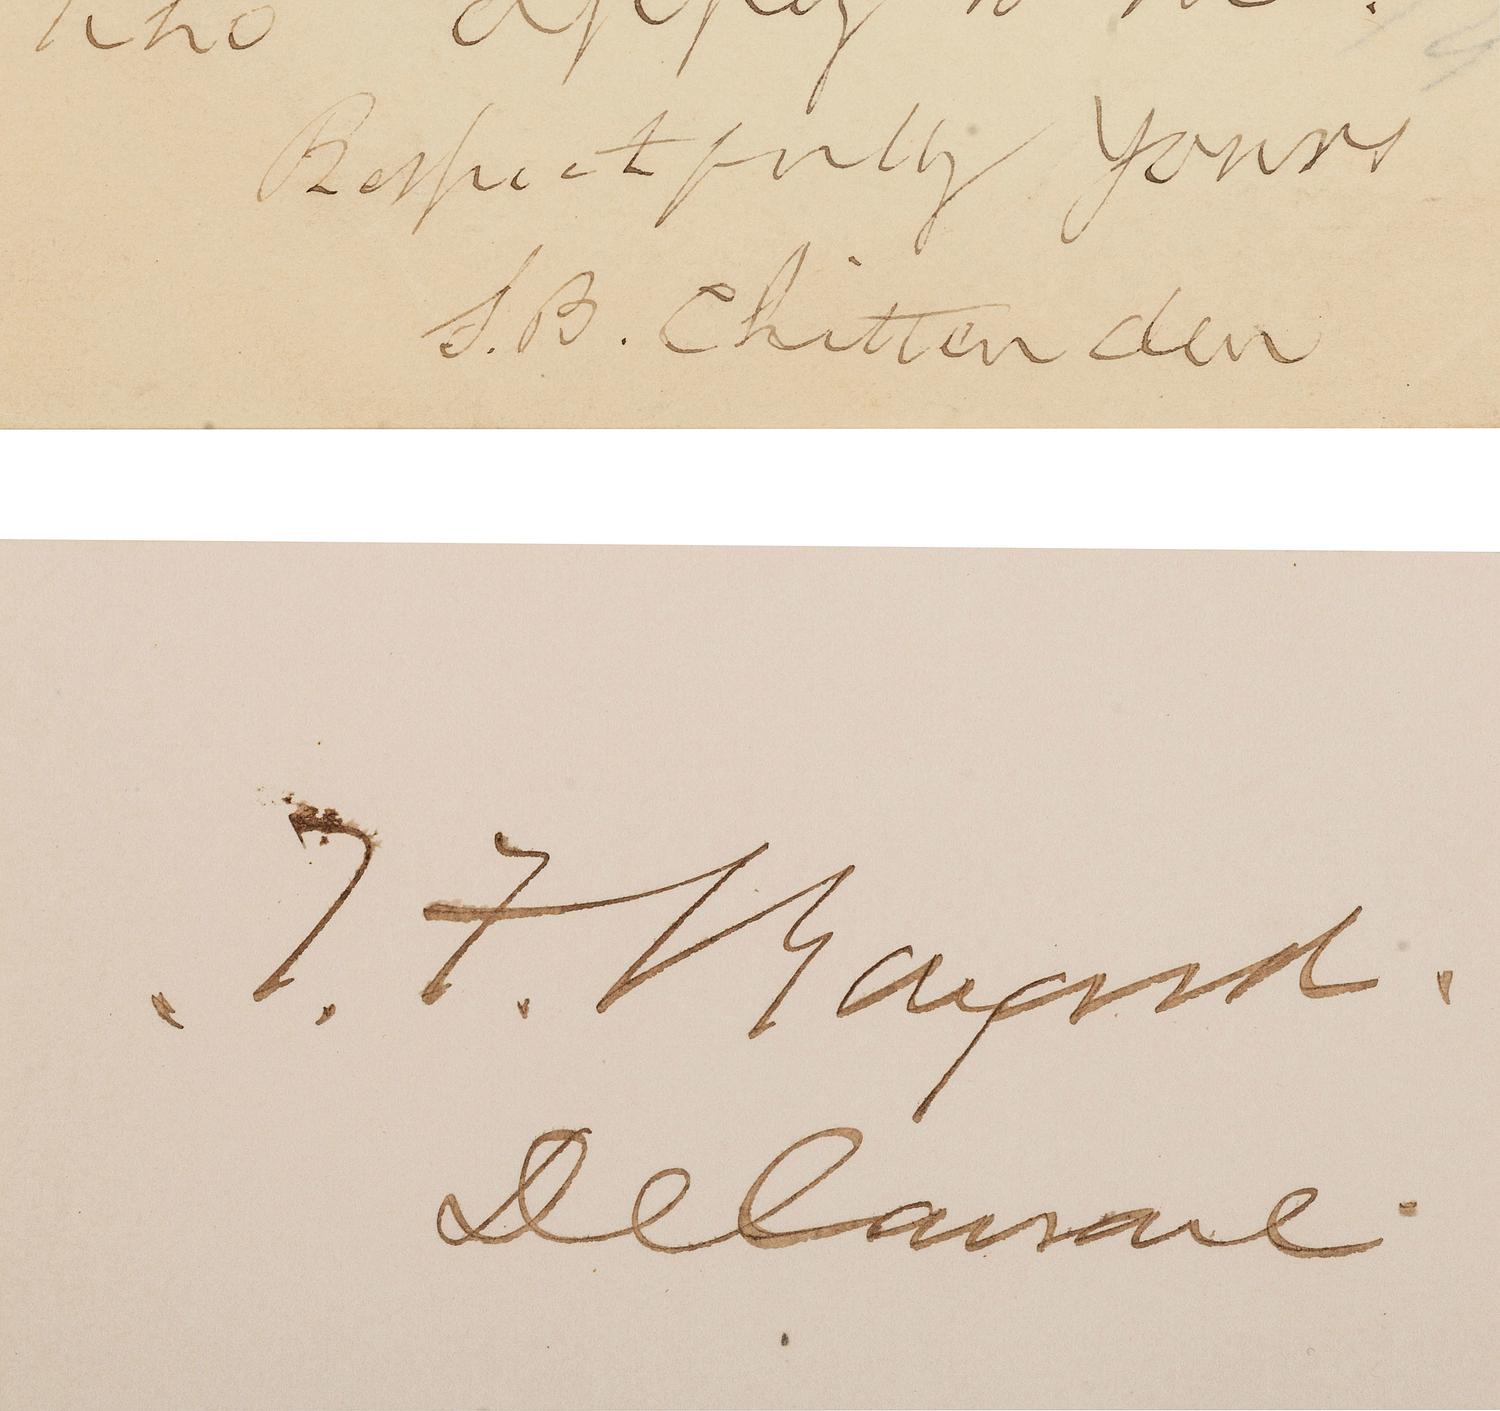 who apply to me.
Respectfully Yours
S.B. Chittenden
T. F. Bayard.
Delaware.